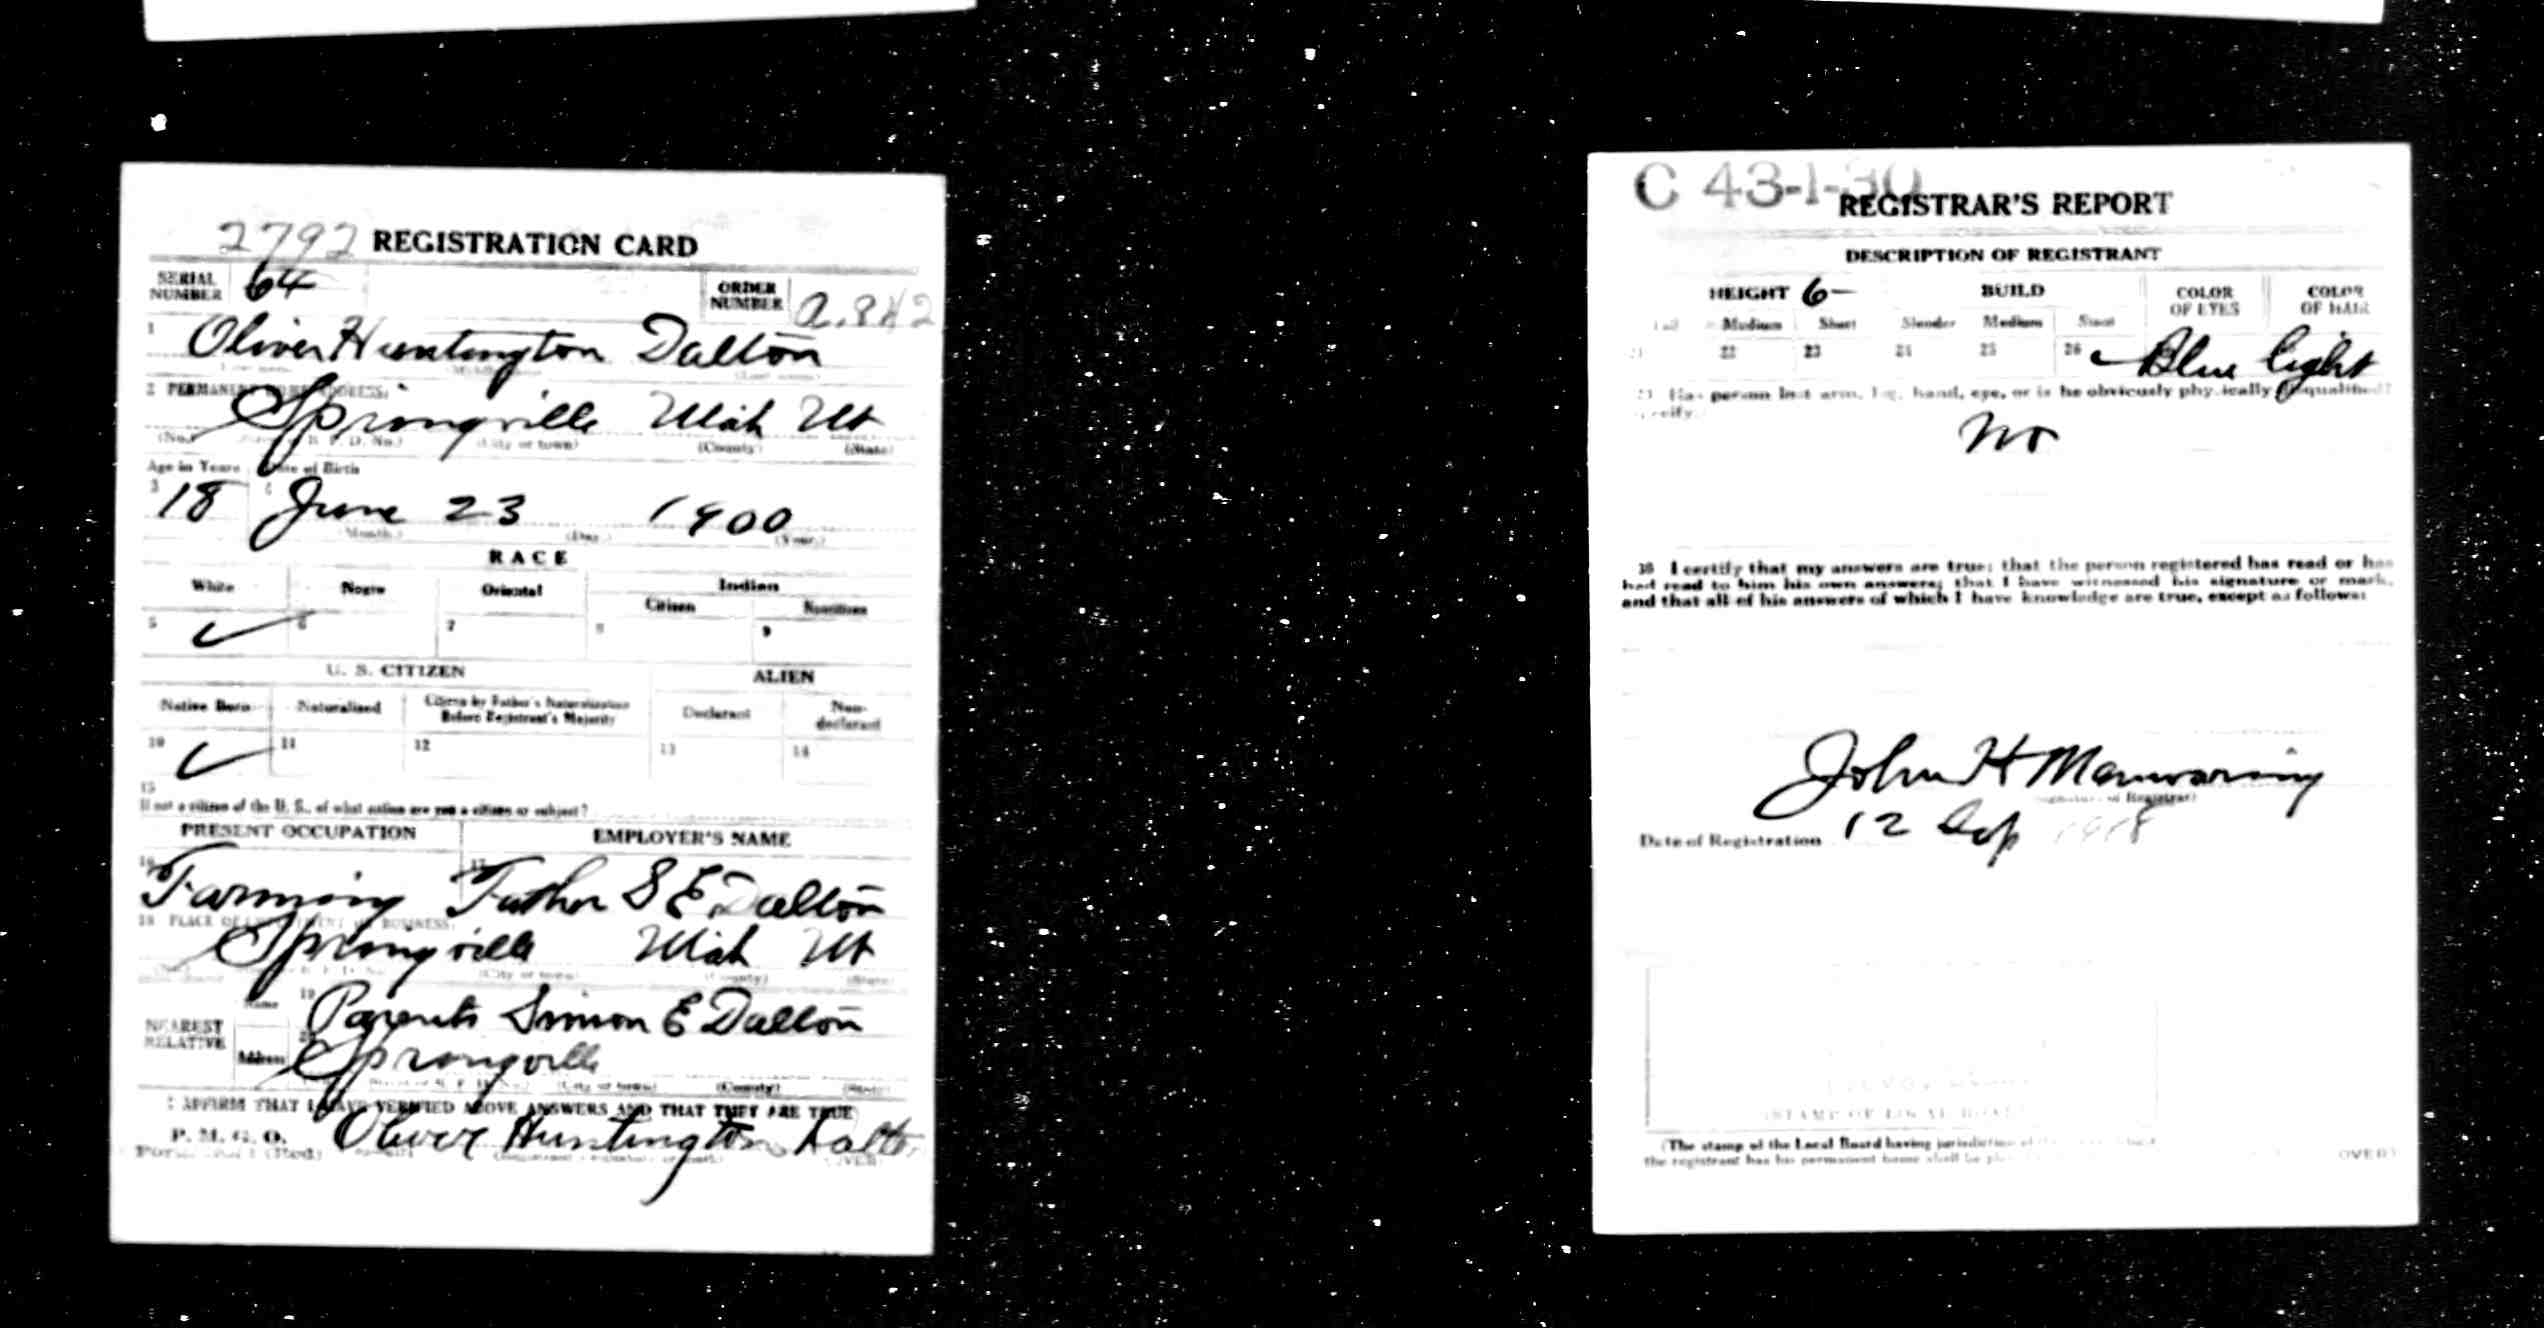 2792 REGISTRATION CARD
SERIAL NUMBER 64 ORDER NUMBER
1 Oliver Huntington Dalton
2 PERMANENT HOME ADDRESS:
Springville Utah Ut
(No.) (City or town) (County) (State)
Age in Years Date of Birth
3 18 4 June 23 1900
(Month.) (Day.) (Year.)
RACE
White Negro Oriental Indian
Citizen Noncitizen
5 ✓ 6 7 8 9
U. S. CITIZEN ALIEN
Native Born Naturalized Citizen by Father's Naturalization Before Registrant's Majority Declarant Non-declarant
10 ✓ 11 12 13 14
15
If not a citizen of the U. S., of what nation are you a citizen or subject?
PRESENT OCCUPATION EMPLOYER'S NAME
16 Farming 17 Father S E Dalton
18 PLACE OF EMPLOYMENT OR BUSINESS:
Springville Utah Ut
(City or town) (County) (State)
NEAREST RELATIVE
Name 19 Parents Simon E Dalton
Address 20 Springville
(City or town) (County) (State)
I AFFIRM THAT I HAVE VERIFIED ABOVE ANSWERS AND THAT THEY ARE TRUE
P. M. G. O.
(Red) Oliver Huntington Dalton
(OVER)
C 43-1-30
REGISTRAR'S REPORT
DESCRIPTION OF REGISTRANT
HEIGHT 6- BUILD COLOR OF EYES COLOR OF HAIR
Tall Medium Short Slender Medium Stout
21 22 23 24 25 26 Blue light
Has person lost arm, leg, hand, eye, or is he obviously physically disqualified?
(Specify.)
No
30 I certify that my answers are true; that the person registered has read or has
had read to him his own answers; that I have witnessed his signature or mark,
and that all of his answers of which I have knowledge are true, except as follows:
John H Manwaring
(Signature of Registrar)
Date of Registration 12 Sep 1918
(STAMP OF LOCAL BOARD)
(The stamp of the Local Board having jurisdiction of the
the registrant has his permanent home shall be
(OVER)